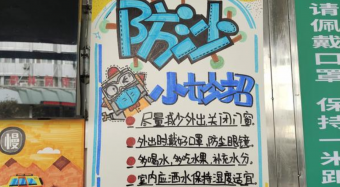 防沙
小妙招
尽量减少外出关闭门窗
外出时戴好口罩,防尘眼镜
多喝水,多吃水果 补充水分。
室内应洒水保持湿度适宜
慢
请佩戴口罩 保持一米距